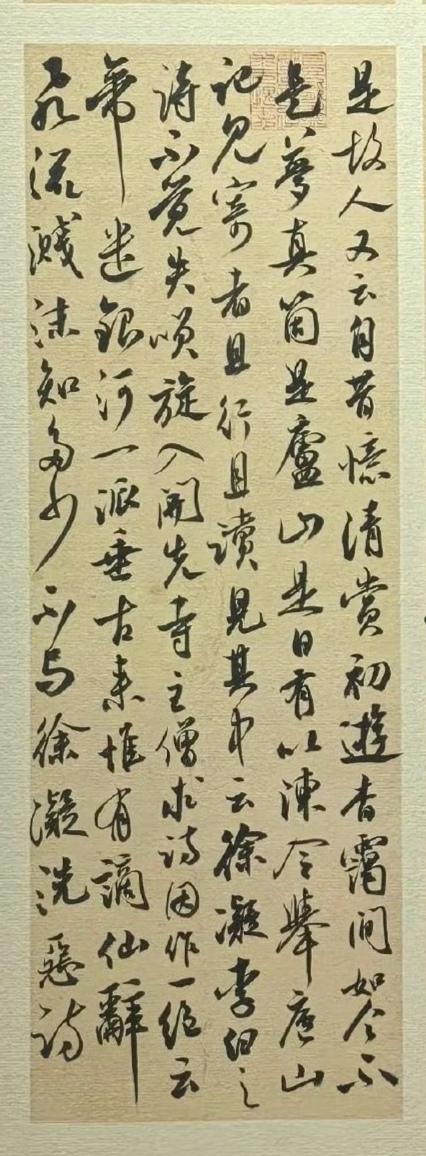 是故人又云自昔憶清賞初遊杳靄間如今不
是夢真箇是廬山是日有以陳令舉廬山
記見寄者且行且讀見其中云徐凝李白之
詩不覺失笑旋入開先寺主僧求詩因作一絕云
帝遣銀河一派垂古來惟有謫仙辭
飛流濺沫知多少不与徐凝洗惡詩